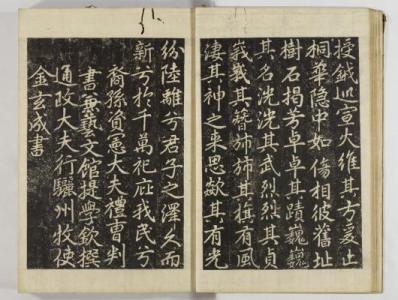 授鉞以宣大維其方爰止
桐華隐中如傷相彼舊址
樹石揭芳卓卓其蹟巍巍
其名洸洸其武烈烈其貞
峩峩其簪旆旆其旗有風
淒其神之来思歘其有光
紛陸離兮君子之澤久而
新兮於千萬祀庇我民兮
裔孫資憲大夫禮曹判
書兼藝文館提學欽撰
通政大夫行驩州牧使
金玄成書